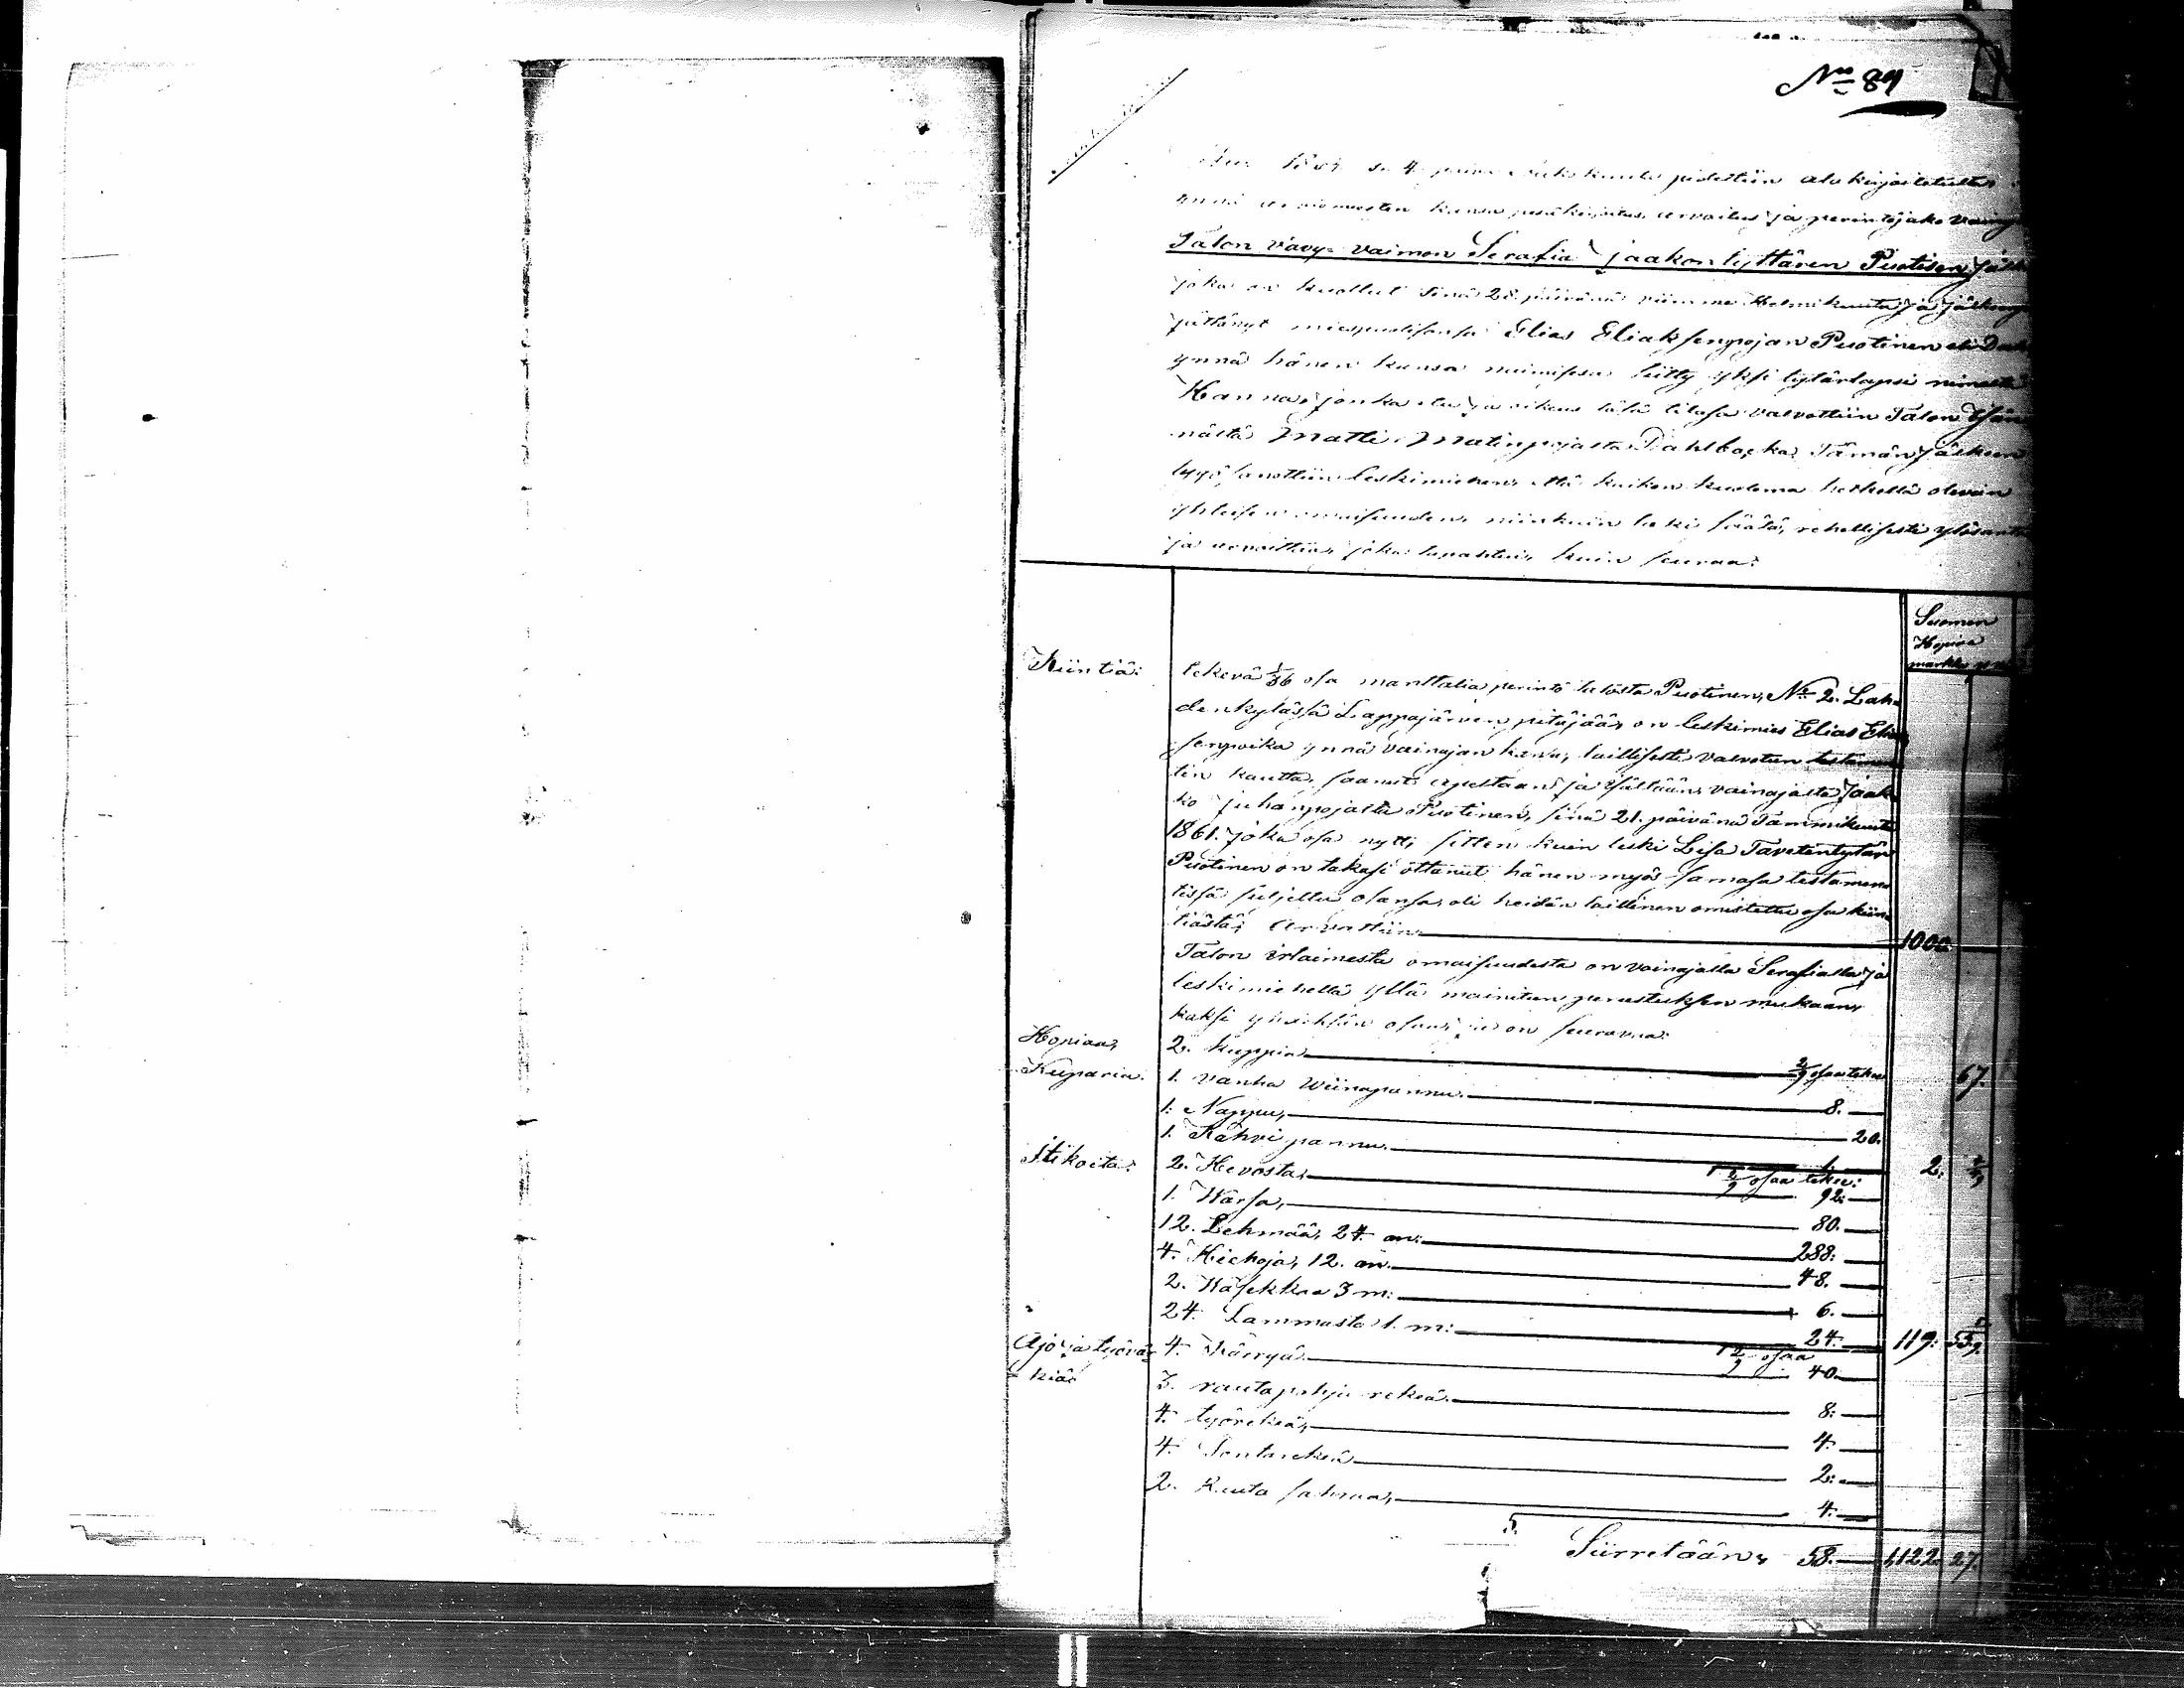 No 89
4 päivä pidettiin alakirjoitetulta
ynnä arviomiesten kansa perukirjoitus, arvoitus ja perintöjako
Talon vävy-vaimon Serafia Jaakontyttären Puotisen jälk
joka on kuollut sinä 28. päivänä viimme Helmikuuta ja
jättänyt miespuolisonsa Elias Eliaksenpojan Puotinen eli
ynnä hänen kansa naimisesa siitty yksi tytärlapsi nimeltä
Hanna, jonka etu ja oikeus täsä tilasa valvottiin Talon Isän
nältä Matti Matinpojalta Dahlbacka. Tämän jälkeen
käytiin leskimiehen, että kaiken kuoleman hetkellä olevan
yhteisen omaisuuden, niinkuin laki säätä, rehellisesti ylösanta
ja arvoittiin, joka tapahtui, kuin seuraa:
Suomen
Hopiaa
markka p:
Kiintiä: tekevä 1/36 osa manttalia perintö talosta Puotinen, No 2. Lah-
denkyläsä Lappajärven pitäjää, on leskimies Elias Elia
senpoika ynnä vainajan kansa, laillisesti valvotun testamen
tin kautta, saanut apeltaan ja isältään vainajalta Jaak-
ko Juhanpojalta Puotinen, sinä 21. päivänä Tammikuuta
1861. joka osa nytt, sitten kuin leski Lisa Tavetintytär
Puotinen on takasi ottanut hänen myös samasa testamen
tissä suljettu osansa, oli heidän laillinen omistettu osa kiin-
tiästä, Arvattiin 1000
Talon irtaimesta omaisuudesta on vainajalla Serafialla ja
leskimiehellä yllä mainitun perustuksen mukaan,
kaksi yhdeksän osaa, ja on seurava:
Hopiaa, 2. kuppia 2/9 osaa tekee 67.
Kuparia. 1. vanha Wiinapannu. 8.
1. Nappu, 20.
1. Kahvi pannu. 1.
Itikoita: 2. Hevosta, 2/9 osaa tekee: 92. 2. 2/9
1. Warsa, 80.
12. Lehmää, 24. an: 288:
4. Hiehoja, 12. än. 48.
2. Wasikkaa 3 m: 6.
24. Lammasta 1. m: 24.
Ajo ja työvä- 4. Kärryä 2/9 osaa 40. 119: 55 5/9.
kiä: 3. rautapohja rekeä. 8:
4. työrekeä, 4.
4. Sontarekeä 2:
2. Ruuta sahraa, 4.
Siirretään, 58. 1,122. 27.